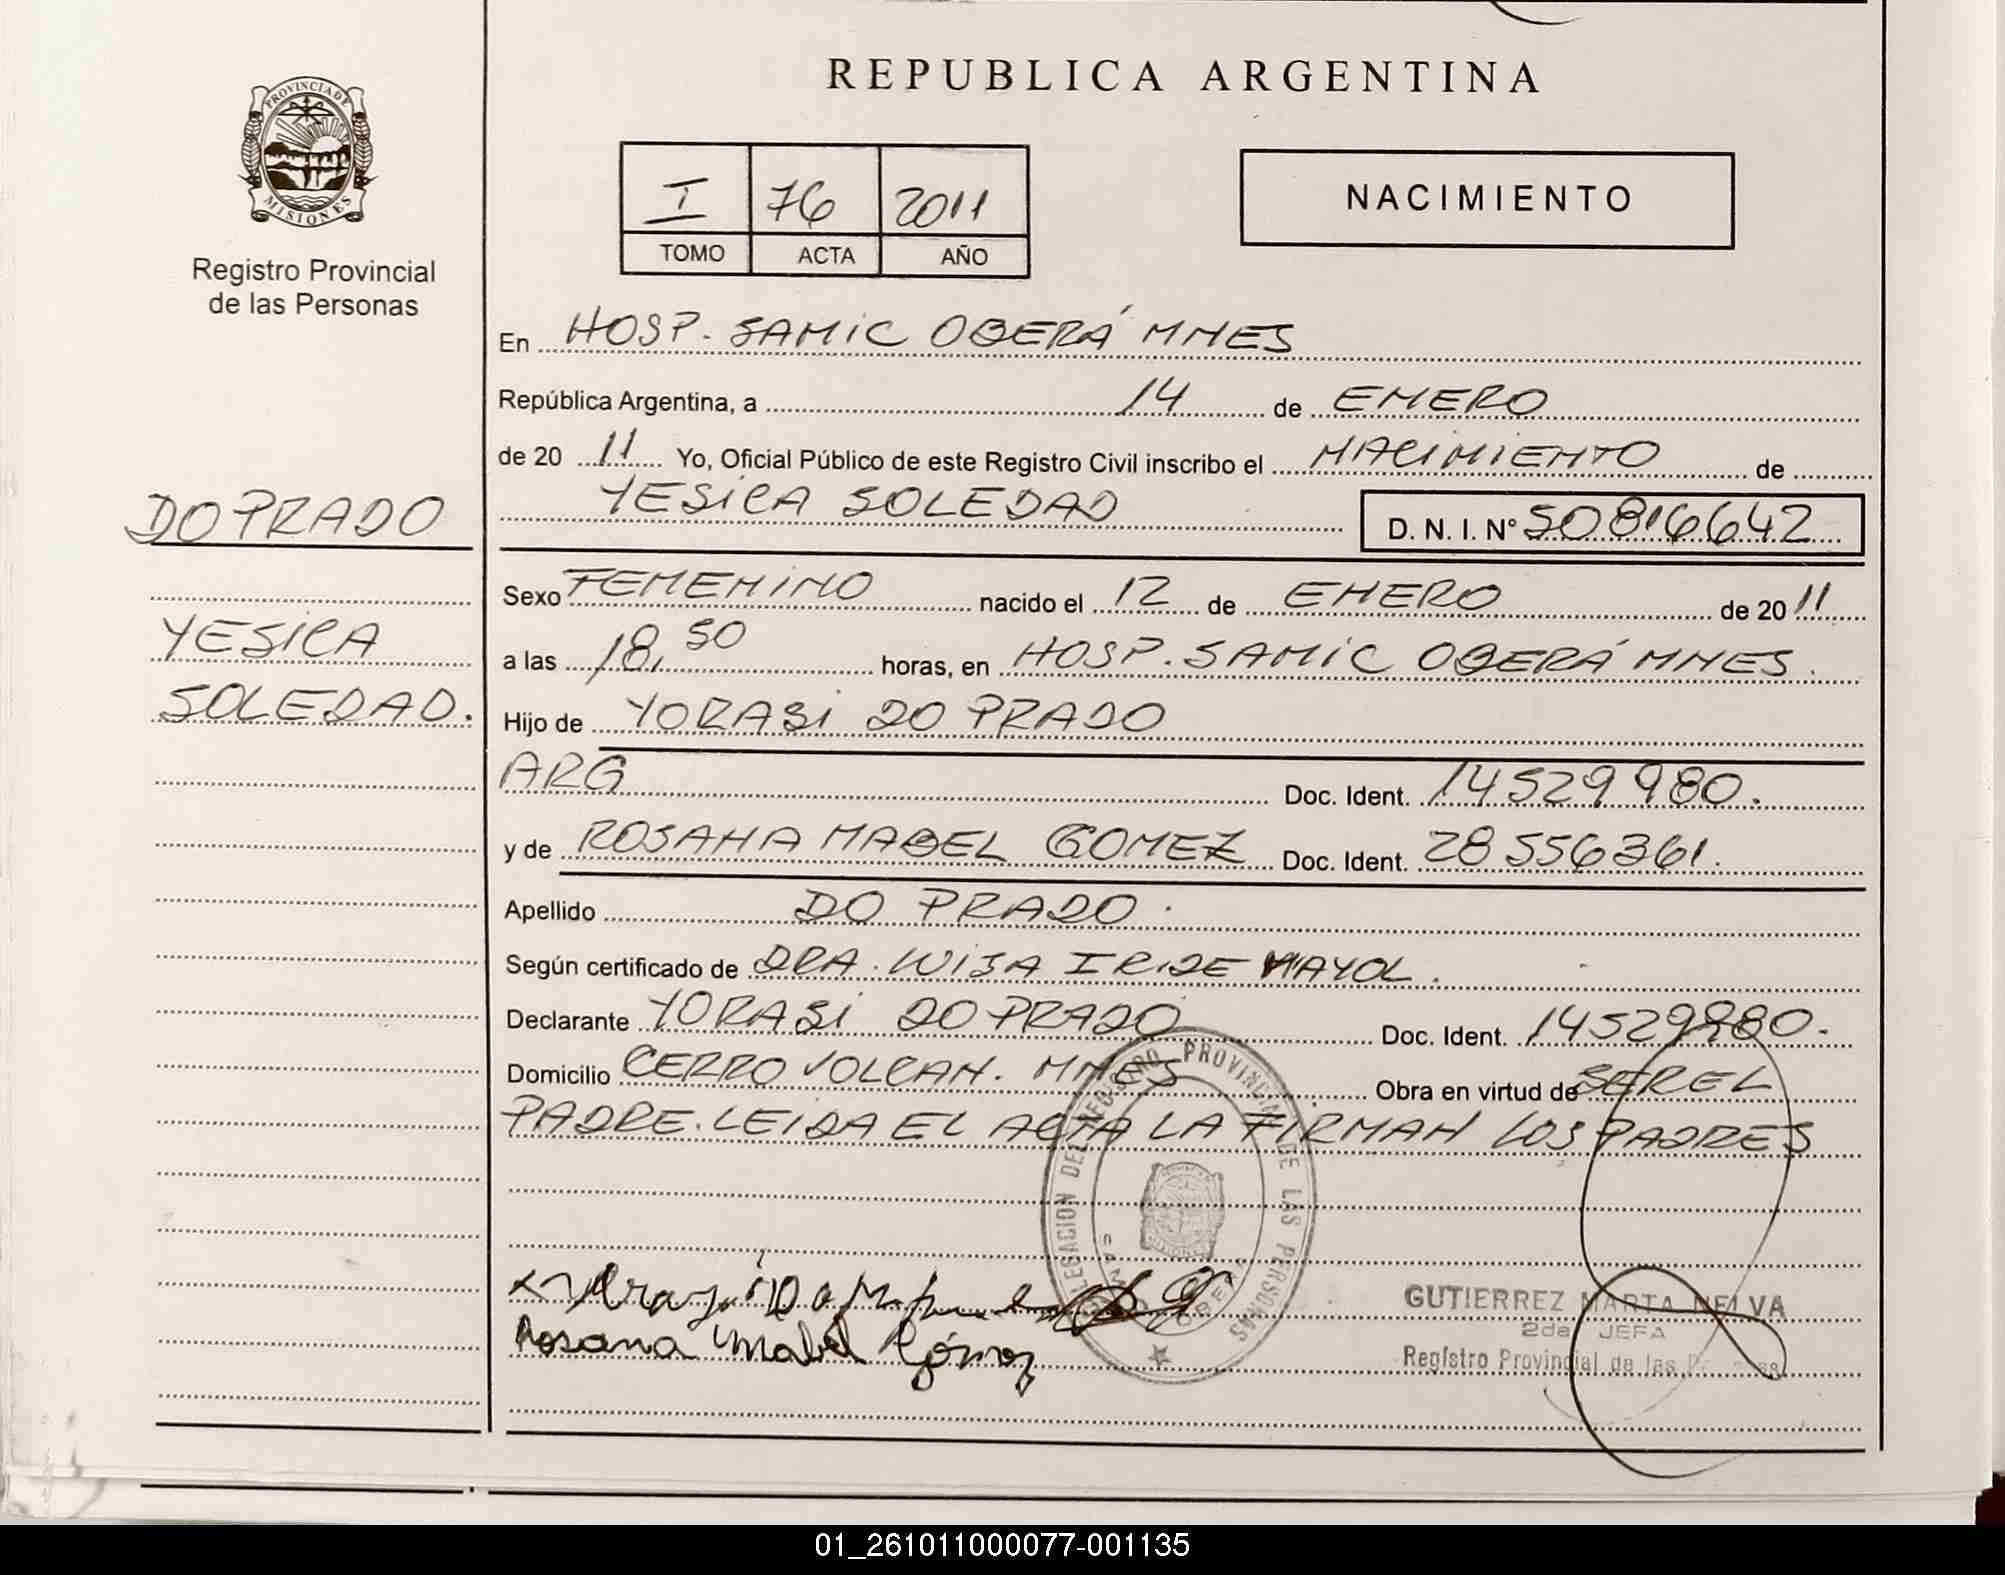 PROVINCIA DE
MISIONES
Registro Provincial
de las Personas
DO PRADO
YESICA
SOLEDAD.
REPUBLICA ARGENTINA
I 76 2011
TOMO ACTA AÑO
NACIMIENTO
En HOSP. SAMIC OBERÁ MNES
República Argentina, a 14 de ENERO
de 20 11 Yo, Oficial Público de este Registro Civil inscribo el NACIMIENTO de
YESICA SOLEDAD D. N. I. N° 50816642
Sexo FEMENINO nacido el 12 de ENERO de 20 11
a las 18,50 horas, en HOSP. SAMIC OBERÁ MNES.
Hijo de YORASI DO PRADO
ARG Doc. Ident. 14529980.
y de ROSANA MABEL GOMEZ Doc. Ident. 28556361.
Apellido DO PRADO.
Según certificado de DRA. LUISA IRIDE MAYOL.
Declarante YORASI DO PRADO Doc. Ident. 14529980.
Domicilio CERRO VOLCAN. MNES Obra en virtud de SER EL
PADRE. LEIDA EL ACTA LA FIRMAN LOS PADRES
DELEGACION DEL REGISTRO PROVINCIAL DE LAS PERSONAS
Rosana Mabel Gómez
GUTIERREZ MARTA NELVA
2da JEFA
Registro Provincial de las Personas
01_261011000077-001135